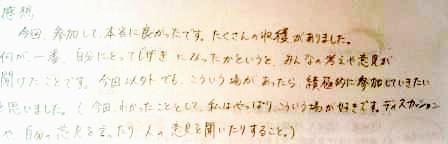 感想
今回、参加して、本当に良かったです。たくさんの収穫がありました。
何が一番、自分にとってしげきになったかというと、みんなの考えや意見が
聞けたことです。今回以外でも、こういう場があったら、積極的に参加していきたい
と思いました。(今回、わかったこととして、私はやっぱりこういう場が好きです。ディスカッション
や自分の意見を言ったり人の意見を聞いたりすること。)